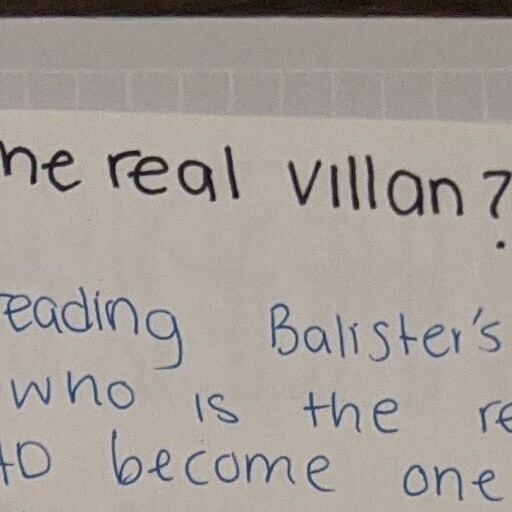 he real villan?
eading Balister's
who is the re
to become one